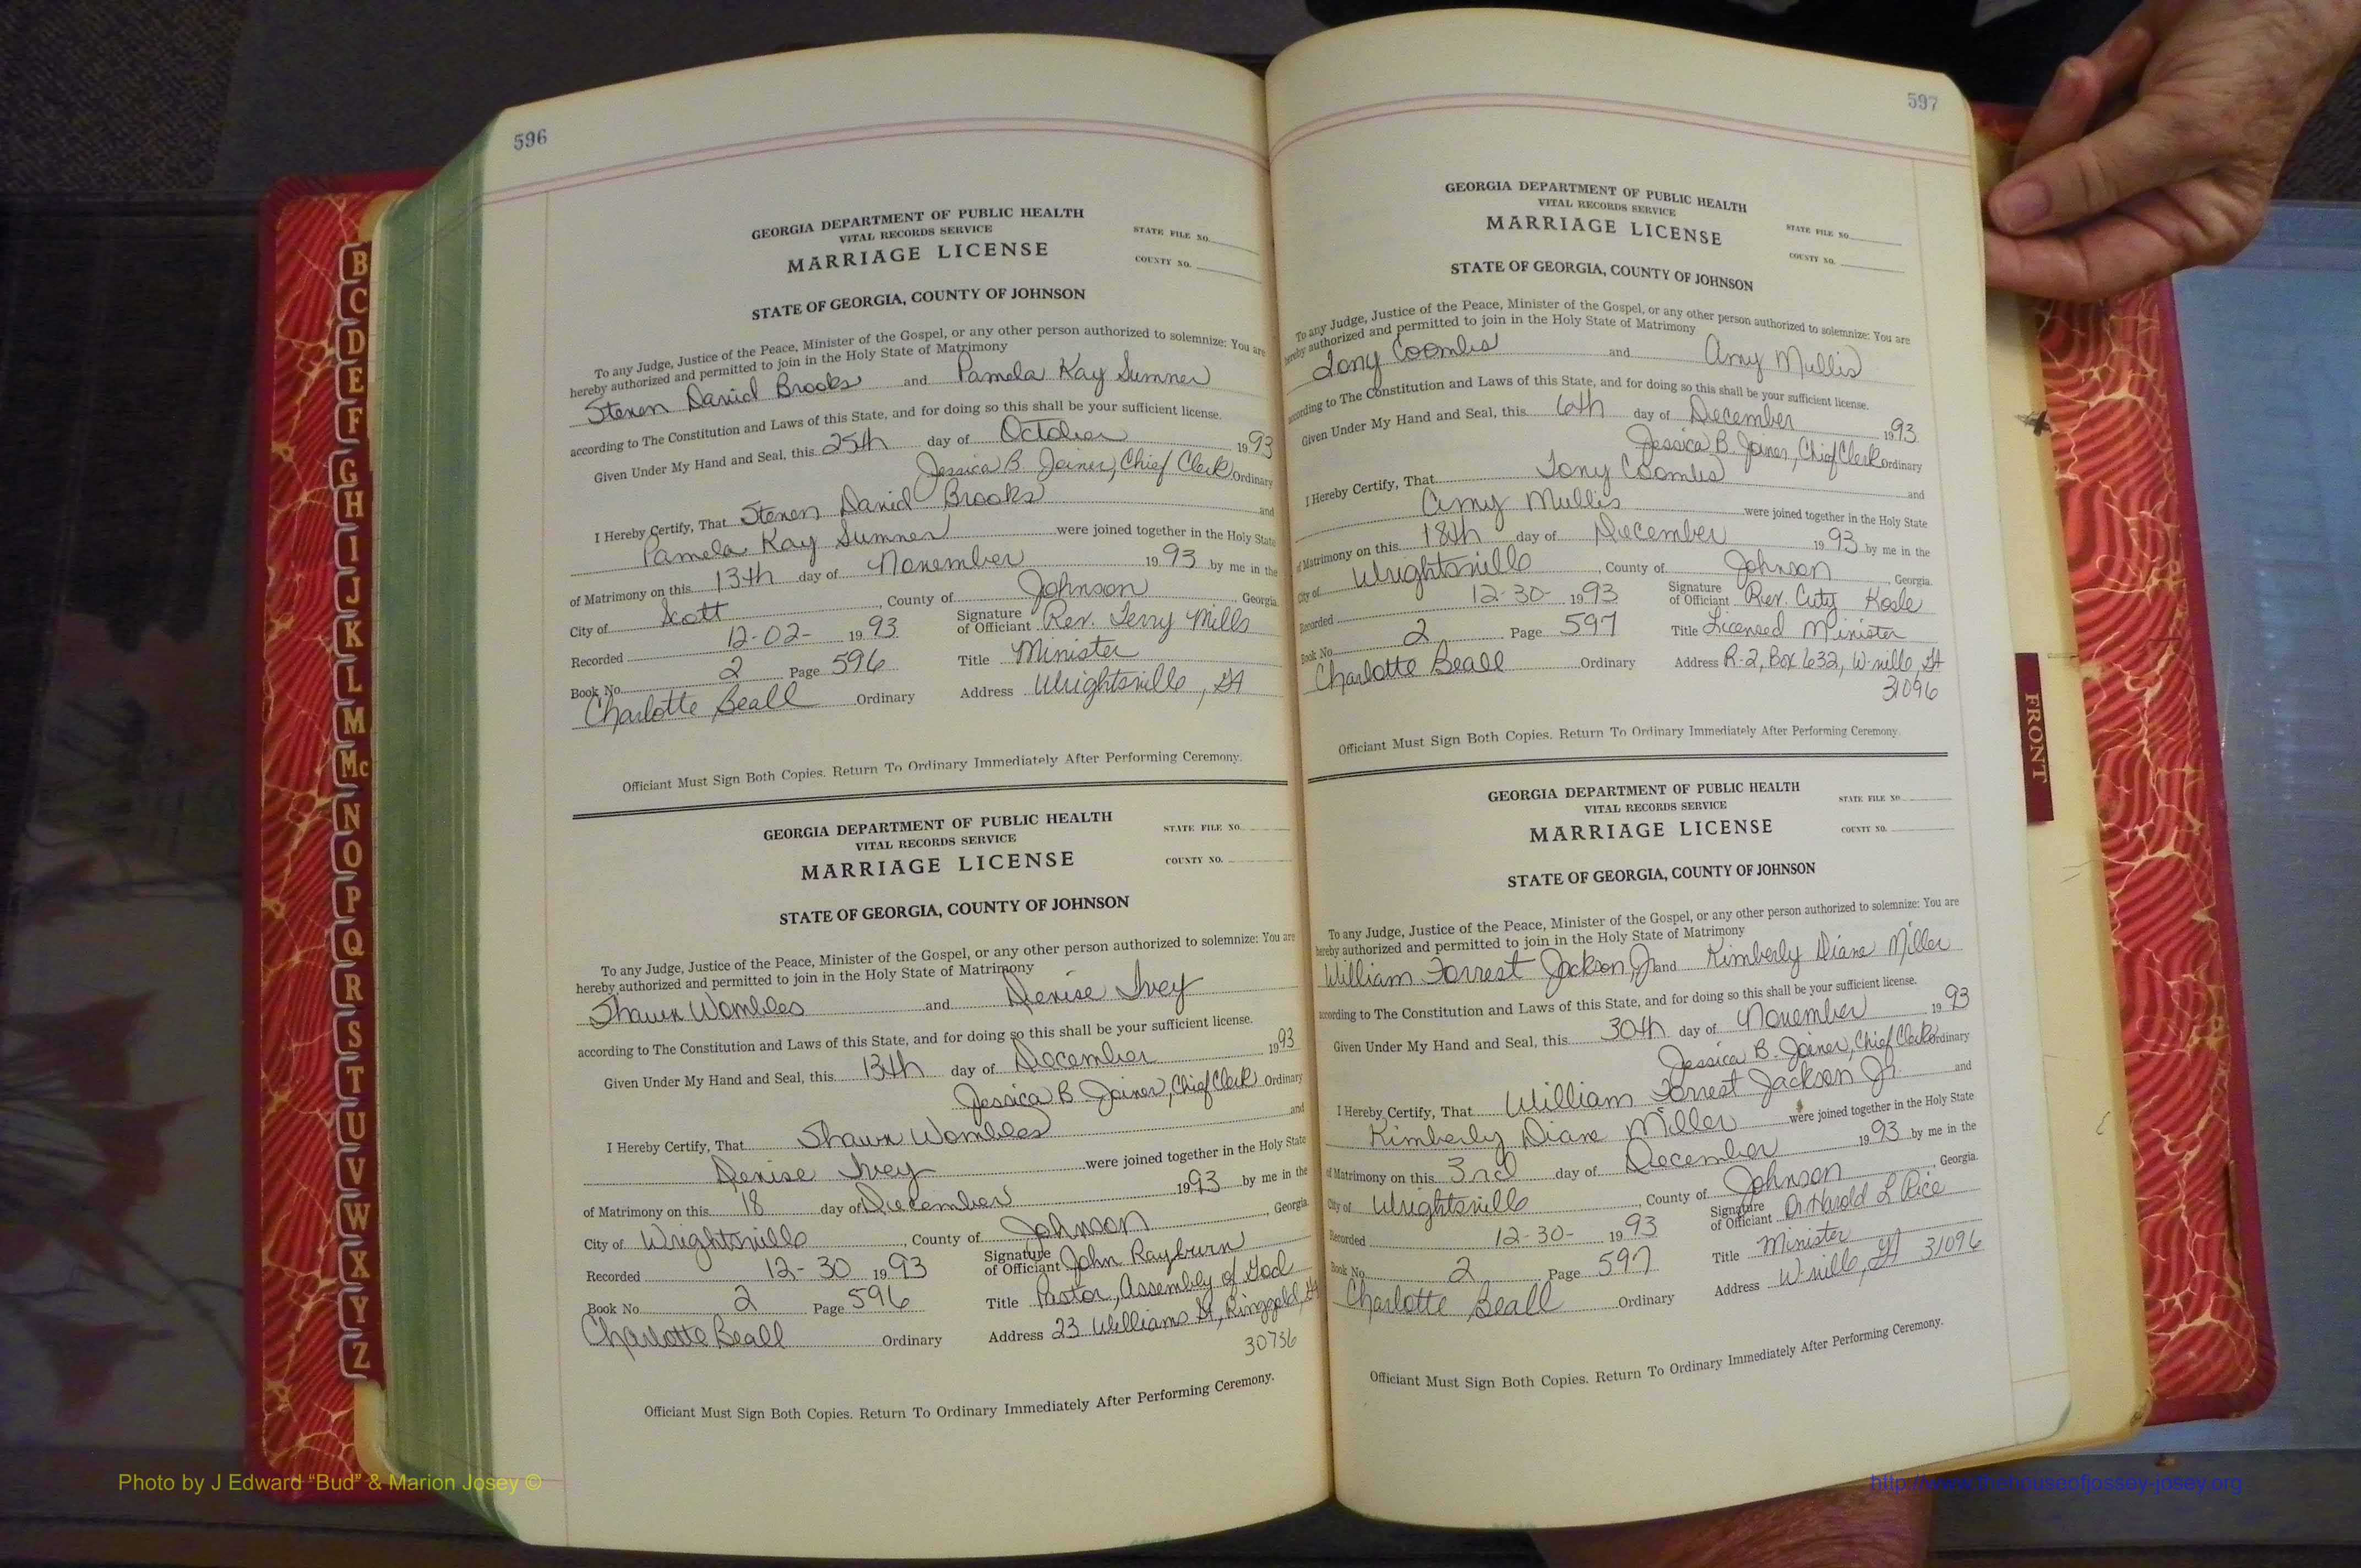 596
GEORGIA DEPARTMENT OF PUBLIC HEALTH
VITAL RECORDS SERVICE
MARRIAGE LICENSE
STATE FILE NO.
COUNTY NO.
STATE OF GEORGIA, COUNTY OF JOHNSON
To any Judge, Justice of the Peace, Minister of the Gospel, or any other person authorized to solemnize: You are
hereby authorized and permitted to join in the Holy State of Matrimony
Steven David Brooks and Pamela Kay Sumner
according to The Constitution and Laws of this State, and for doing so this shall be your sufficient license.
Given Under My Hand and Seal, this 25th day of October 1993
Jessica B. Joiner, Chief Clerk Ordinary
I Hereby Certify, That Steven David Brooks and
Pamela Kay Sumner were joined together in the Holy State
of Matrimony on this 13th day of November 1993 by me in the
City of Scott, County of Johnson, Georgia
Recorded 12-02- 1993 Signature of Officiant Rev. Terry Mills
Book No. 2 Page 596 Title Minister
Charlotte Beall Ordinary Address Wrightsville, GA
Officiant Must Sign Both Copies. Return To Ordinary Immediately After Performing Ceremony.
GEORGIA DEPARTMENT OF PUBLIC HEALTH
VITAL RECORDS SERVICE
MARRIAGE LICENSE
STATE FILE NO.
COUNTY NO.
STATE OF GEORGIA, COUNTY OF JOHNSON
To any Judge, Justice of the Peace, Minister of the Gospel, or any other person authorized to solemnize: You are
hereby authorized and permitted to join in the Holy State of Matrimony
Shawn Wombles and Denise Ivey
according to The Constitution and Laws of this State, and for doing so this shall be your sufficient license.
Given Under My Hand and Seal, this 13th day of December 1993
Jessica B. Joiner, Chief Clerk Ordinary
I Hereby Certify, That Shawn Wombles and
Denise Ivey were joined together in the Holy State
of Matrimony on this 18 day of December 1993 by me in the
City of Wrightsville, County of Johnson, Georgia
Recorded 12-30 1993 Signature of Officiant John Rayburn
Book No. 2 Page 596 Title Pastor, Assembly of God
Charlotte Beall Ordinary Address 23 Williams St, Ringgold, GA
30736
Officiant Must Sign Both Copies. Return To Ordinary Immediately After Performing Ceremony.
597
GEORGIA DEPARTMENT OF PUBLIC HEALTH
VITAL RECORDS SERVICE
MARRIAGE LICENSE
STATE FILE NO.
COUNTY NO.
STATE OF GEORGIA, COUNTY OF JOHNSON
To any Judge, Justice of the Peace, Minister of the Gospel, or any other person authorized to solemnize: You are
hereby authorized and permitted to join in the Holy State of Matrimony
Tony Coombs and Amy Mullis
according to The Constitution and Laws of this State, and for doing so this shall be your sufficient license.
Given Under My Hand and Seal, this 6th day of December 1993
Jessica B. Joiner, Chief Clerk Ordinary
I Hereby Certify, That Tony Coombs and
Amy Mullis were joined together in the Holy State
of Matrimony on this 18th day of December 1993 by me in the
City of Wrightsville, County of Johnson, Georgia.
Recorded 12-30- 1993 Signature of Officiant Rev.
Book No. 2 Page 597 Title Licensed Minister
Charlotte Beall Ordinary Address R-2, Box 632, W-ville, GA
31096
Officiant Must Sign Both Copies. Return To Ordinary Immediately After Performing Ceremony.
GEORGIA DEPARTMENT OF PUBLIC HEALTH
VITAL RECORDS SERVICE
MARRIAGE LICENSE
STATE FILE NO.
COUNTY NO.
STATE OF GEORGIA, COUNTY OF JOHNSON
To any Judge, Justice of the Peace, Minister of the Gospel, or any other person authorized to solemnize: You are
hereby authorized and permitted to join in the Holy State of Matrimony
William Forrest Jackson, Jr and Kimberly Diane Miller
according to The Constitution and Laws of this State, and for doing so this shall be your sufficient license.
Given Under My Hand and Seal, this 30th day of November 1993
Jessica B. Joiner, Chief Clerk Ordinary
I Hereby Certify, That William Forrest Jackson Jr. and
Kimberly Diane Miller were joined together in the Holy State
of Matrimony on this 3rd day of December 1993 by me in the
City of Wrightsville, County of Johnson, Georgia.
Recorded 12-30- 1993 Signature of Officiant Dr Harold L Rice
Book No. 2 Page 597 Title Minister
Charlotte Beall Ordinary Address W-ville, GA 31096
Officiant Must Sign Both Copies. Return To Ordinary Immediately After Performing Ceremony.
B
C
D
E
F
G
H
I
J
K
L
M
Mc
N
O
P
Q
R
S
T
U
V
W
X
Y
Z
FRONT
Photo by J Edward “Bud” & Marion Josey ©
http://www.thehouseofjossey-josey.org